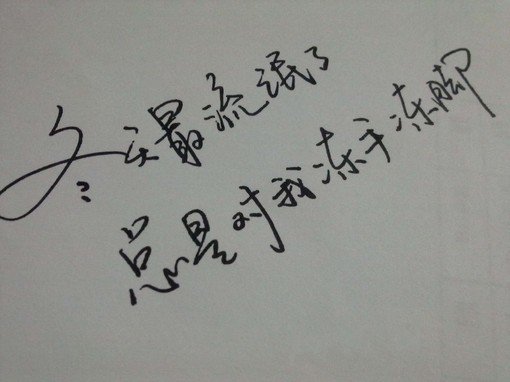 冬天最流氓了
总是对我冻手冻脚